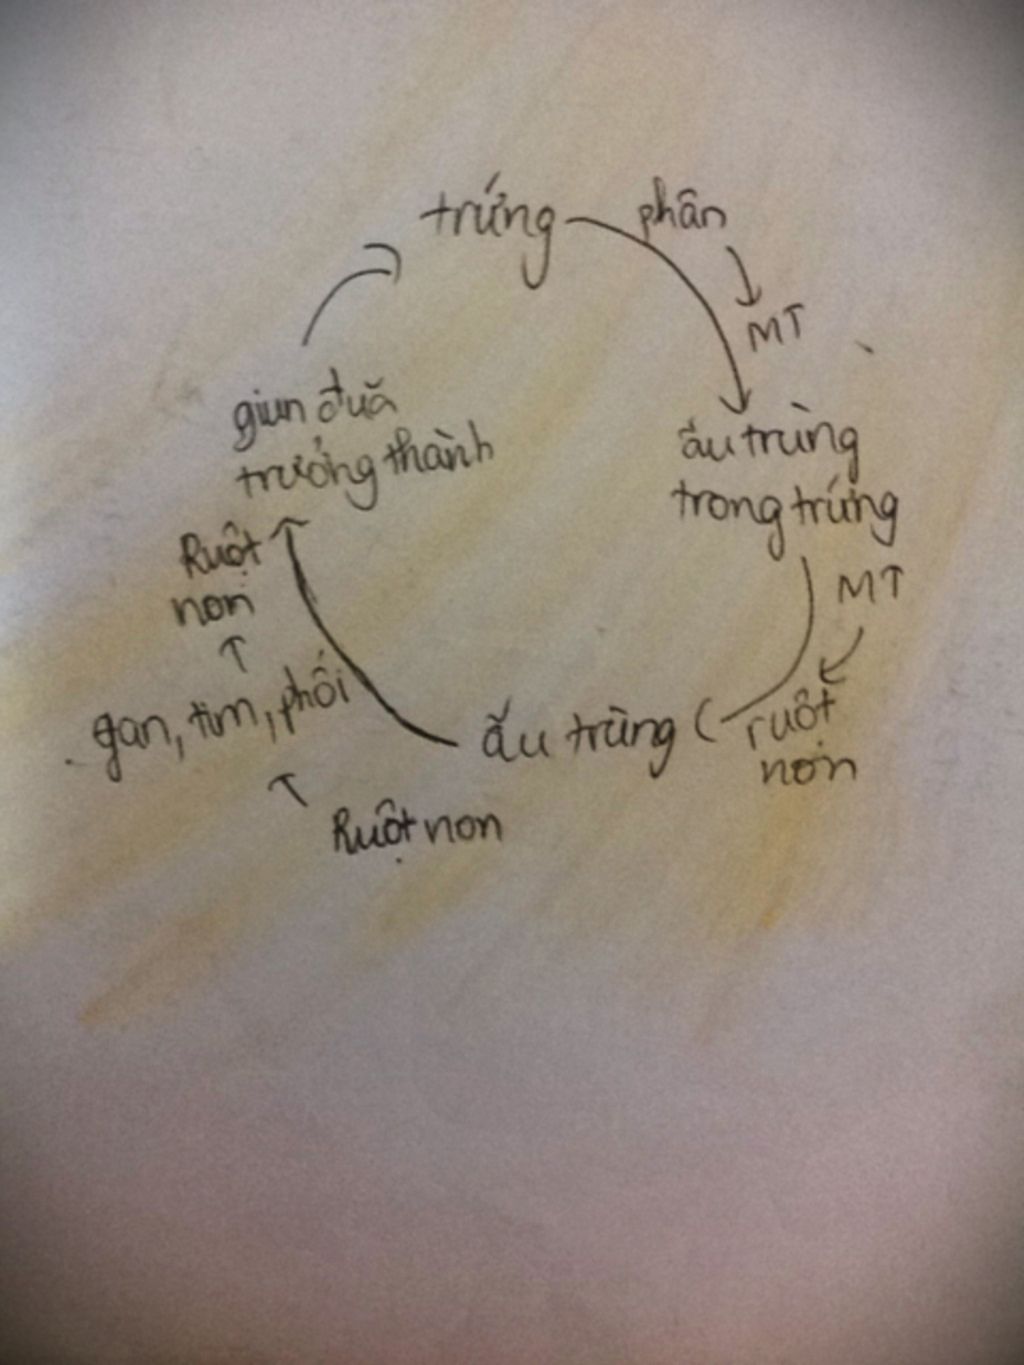 trứng
phân
MT
ấu trùng
trong trứng
MT
ruột
non
ấu trùng
Ruột non
gan, tim, phổi
Ruột
non
giun đũa
trưởng thành